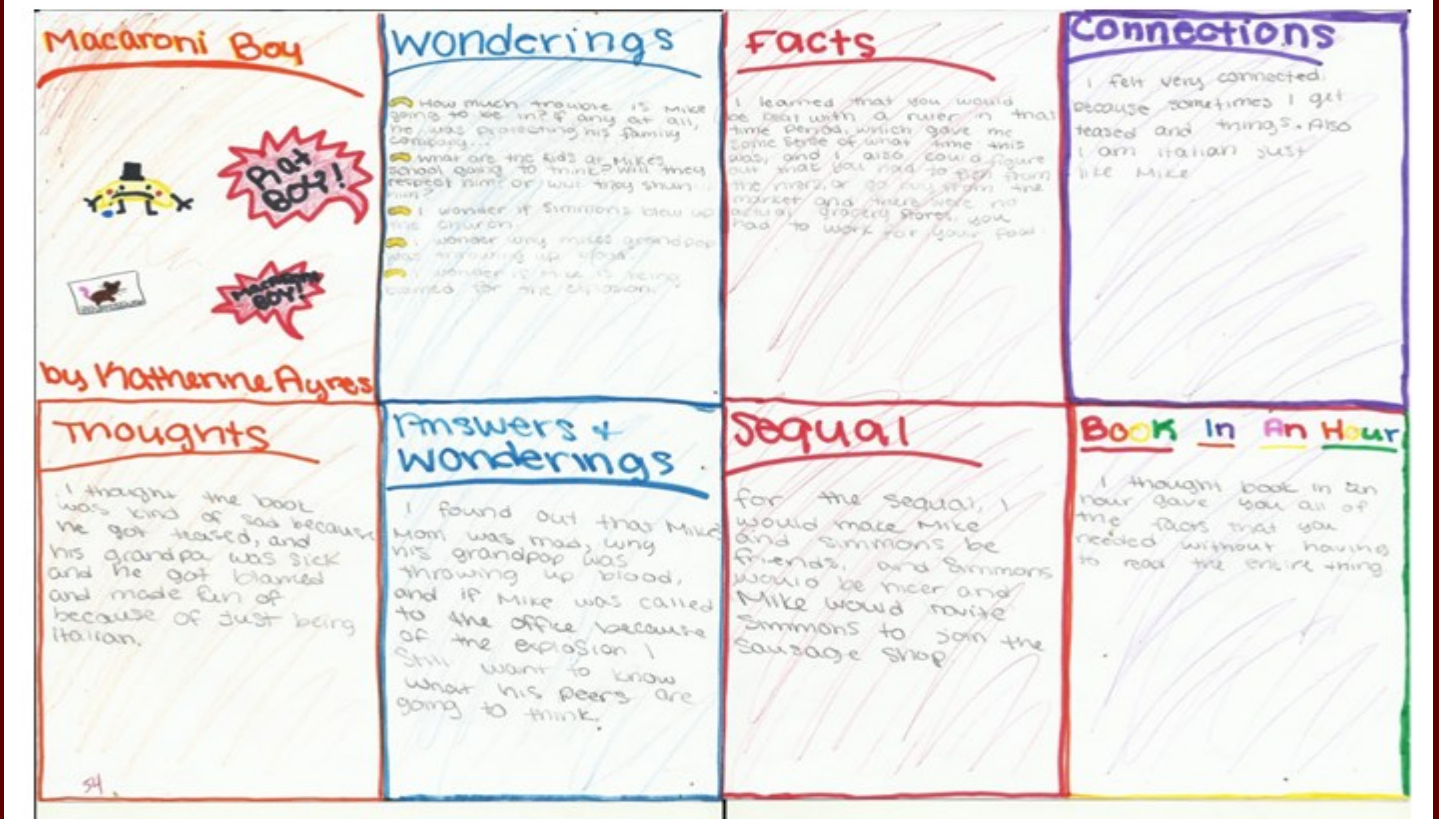 Macaroni Boy
Rat
BOY!
Macaroni
BOY!
by Katherine Ayres
Wonderings
How much trouble is Mike
going to be in? if any at all,
he was protecting his family
company...
What are the kids at Mikes
school going to think? Will they
respect him? or will they shun
him?
I wonder if Simmons blew up
the church.
I wonder why mikes grandpop
was throwing up blood.
I wonder if Mike is being
blamed for the explosion.
Facts
I learned that you would
be beat with a ruler in that
time period, which gave me
some sense of what time this
was, and I also could figure
out that you had to fish from
the river or go buy from the
market and there were no
actual grocery stores, you
had to work for your food.
Connections
I felt very connected
because sometimes I get
teased and things. Also
I am italian just
like Mike
Thoughts
I thought the book
was kind of sad because
he got teased, and
his grandpa was sick
and he got blamed
and made fun of
because of just being
italian.
54
Answers +
Wonderings
I found out that Mikes
Mom was mad, why
his grandpop was
throwing up blood,
and if Mike was called
to the office because
of the explosion I
Still want to know
what his peers are
going to think.
Sequal
for the sequal, I
would make Mike
and Simmons be
friends, and Simmons
would be nicer and
Mike would invite
Simmons to join the
Sausage Shop
Book In An Hour
I thought book in an
hour gave you all of
the facts that you
needed without having
to read the entire thing.